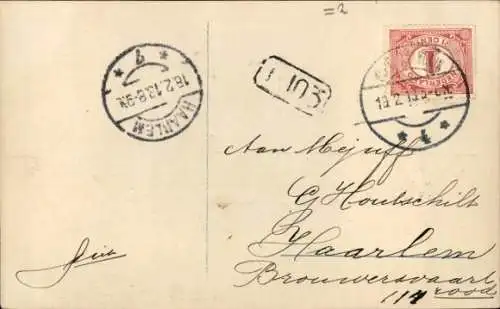 =2
HAARLEM
16.2.13.8-9N
1
1
Aan Mejuff
G Houtschilt
Haarlem
Brouwersvaart
114 rood